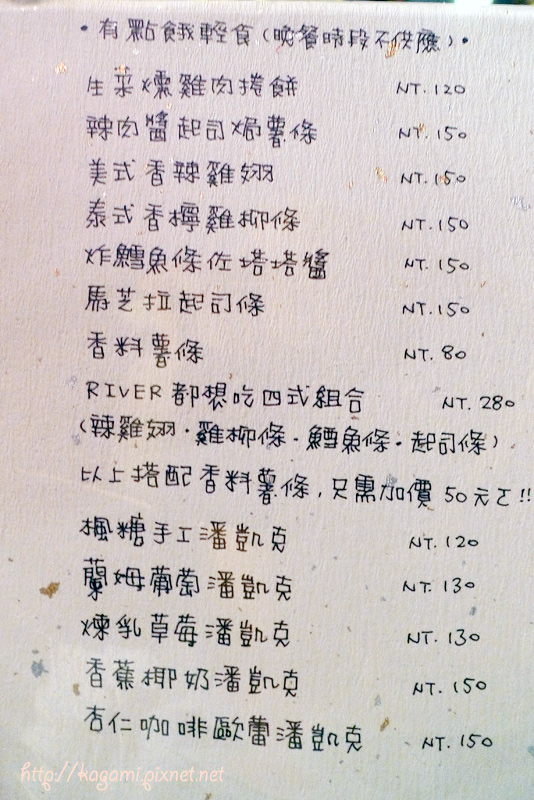 ·有點餓輕食(晚餐時段不供應)·
生菜燻雞肉捲餅 NT.120
辣肉醬起司焗薯條 NT.150
美式香辣雞翅 NT.150
泰式香檸雞柳條 NT.150
炸鱈魚條佐塔塔醬 NT.150
馬芝拉起司條 NT.150
香料薯條 NT.80
RIVER都想吃四式組合 NT.280
(辣雞翅·雞柳條·鱈魚條·起司條)
以上搭配香料薯條,只需加價50元ㄛ!!
楓糖手工潘凱克 NT.120
蘭姆葡萄潘凱克 NT.130
煉乳草莓潘凱克 NT.130
香蕉椰奶潘凱克 NT.150
杏仁咖啡歐蕾潘凱克 NT.150
http://kagami.pixnet.net